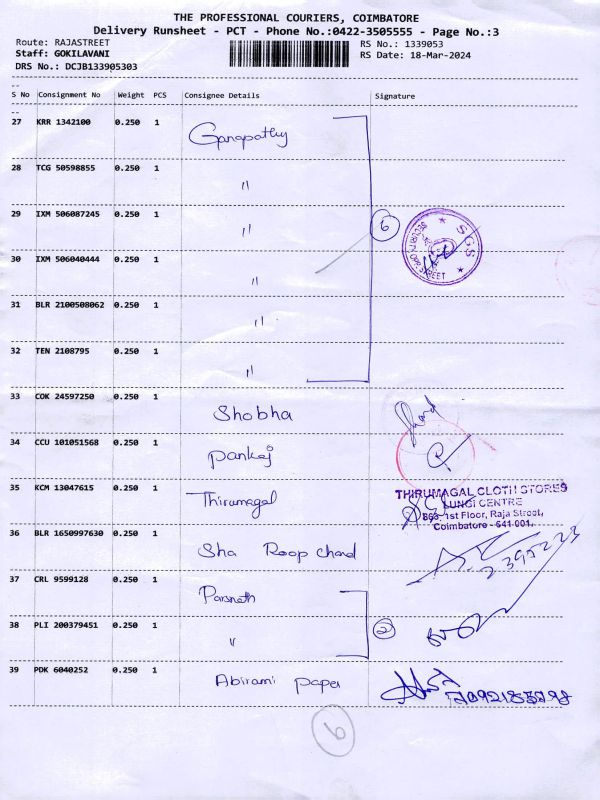 THE PROFESSIONAL COURIERS, COIMBATORE
Delivery Runsheet - PCT - Phone No.:0422-3505555 - Page No.:3
Route: RAJASTREET RS No.: 1339053
Staff: GOKILAVANI RS Date: 18-Mar-2024
DRS No.: DCJB133905303
S No Consignment No Weight PCS Consignee Details Signature
27 KRR 1342100 0.250 1 Ganapathy
28 TCG 50598855 0.250 1 "
29 IXM 506087245 0.250 1 "
6
SGS
STREET
30 IXM 506040444 0.250 1 "
31 BLR 2100508062 0.250 1 "
32 TEN 2108795 0.250 1 "
33 COK 24597250 0.250 1 Shobha
34 CCU 101051568 0.250 1 Pankaj
35 KCM 13047615 0.250 1 Thirumagal
THIRUMAGAL CLOTH STORES
LUNGI CENTRE
1st Floor, Raja Street,
Coimbatore - 641 001.
36 BLR 1650997630 0.250 1 Sha Roop chand
37 CRL 9599128 0.250 1 Parsnath
38 PLI 200379451 0.250 1 "
2
39 PDK 6040252 0.250 1 Abirami paper
9